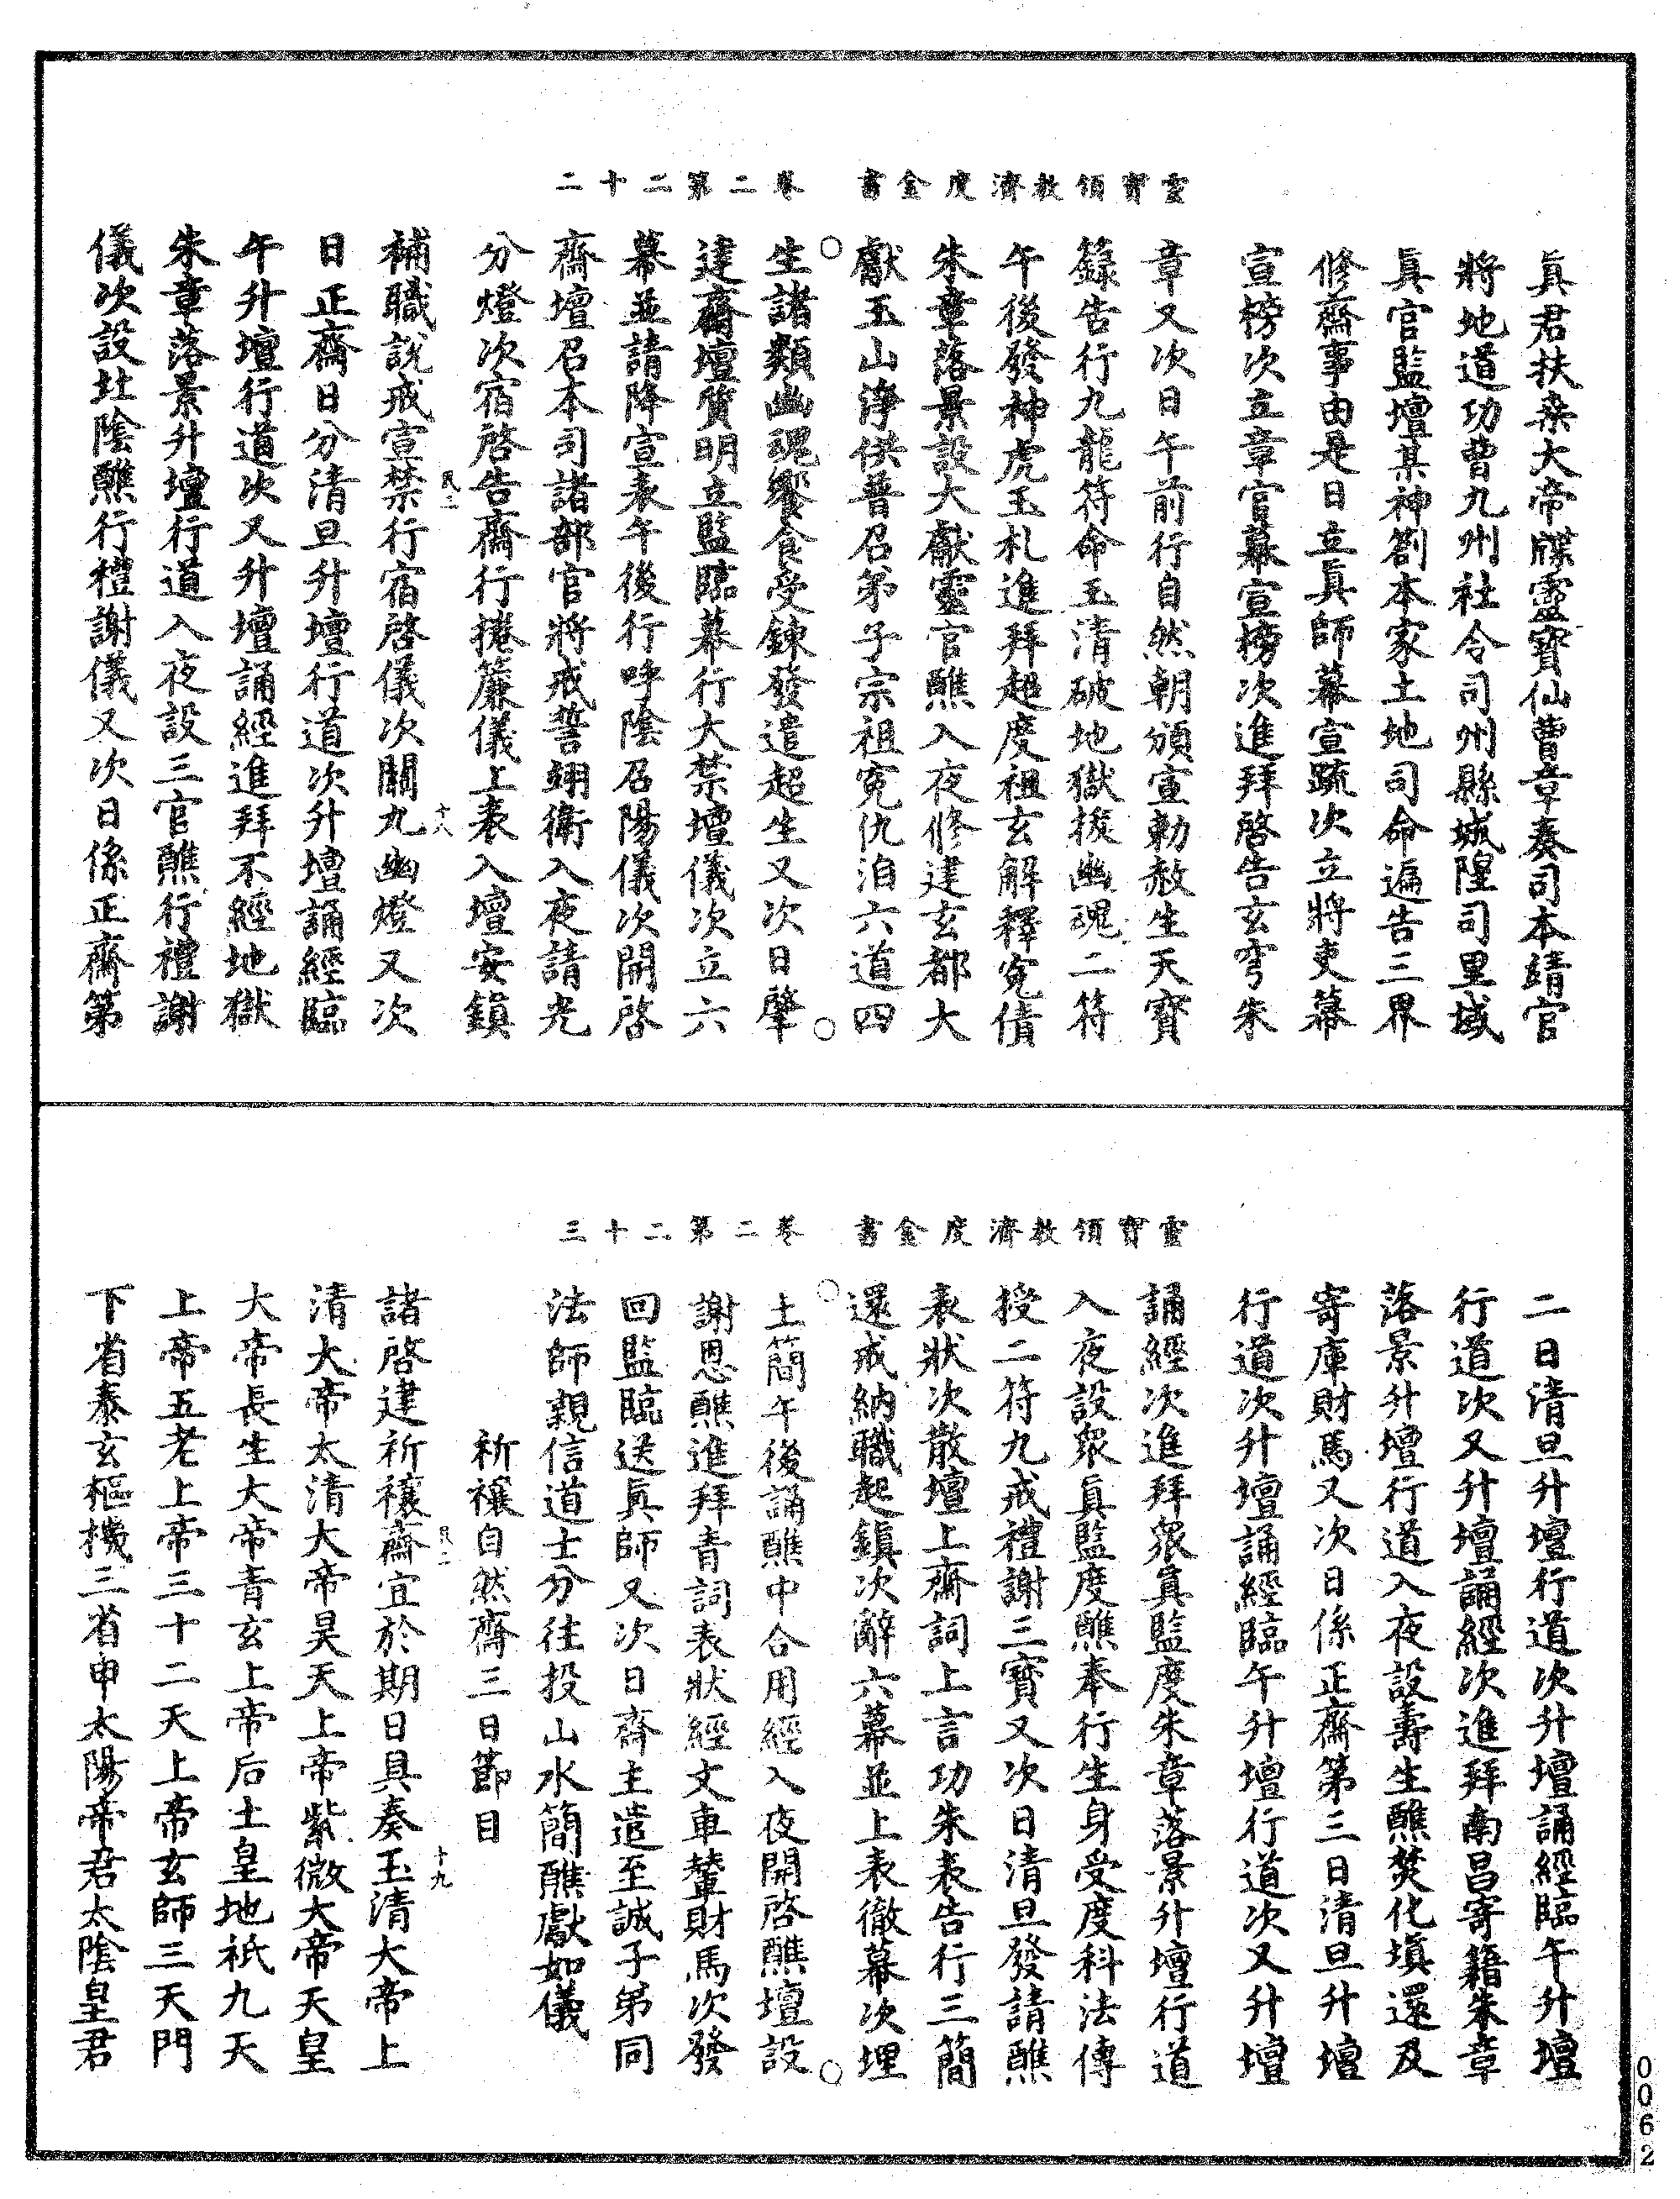 靈寶領教濟度金書　卷二第二十二
眞君扶桑大帝牒靈寶仙曹章奏司本靖官
將地道功曹九州社令司州縣城隍司里域
眞官監壇某神劄本家土地司命遍告三界
修齋事由是日立眞師幕宣䟽次立將吏幕
宣榜次立章官幕宣榜次進拜啓告玄穹朱
章又次日午前行自然朝頒宣勅赦生天寶
籙告行九龍符命玉清破地獄拔幽魂二符
午後發神虎玉札進拜超度祖玄解釋寃債
朱章落景設大獻靈官醮入夜修建玄都大
獻玉山淨供普召弟子宗祖寃仇洎六道四
生諸類幽魂饗食受鍊發遣超生又次日肇
建齋壇質明立監臨幕行大禁壇儀次立六
幕並請降宣表午後行呼陰召陽儀次開啓
齋壇召本司諸部官將戒誓翊衛入夜請光
分燈次宿啓告齋行捲簾儀上表入壇安鎮
補職說戒宣禁行宿啓儀次關九幽燈又次
民二
十八
日正齋日分清旦升壇行道次升壇誦經臨
午升壇行道次又升壇誦經進拜不經地獄
朱章落景升壇行道入夜設三官醮行禮謝
儀次設址陰醮行禮謝儀又次日係正齋第
靈寶領教濟度金書　卷二第二十三
二日清旦升壇行道次升壇誦經臨午升壇
行道次又升壇誦經次進拜南昌寄籍朱章
落景升壇行道入夜設壽生醮焚化填還及
寄庫財馬又次日係正齋第三日清旦升壇
行道次升壇誦經臨午升壇行道次又升壇
誦經次進拜衆眞監度朱章落景升壇行道
入夜設衆眞監度醮奉行生身受度科法傳
授二符九戒禮謝三寶又次日清旦發請醮
表狀次散壇上齋詞上言功朱表告行三簡
還戒納職起鎮次辭六幕並上表徹幕次埋
土簡午後誦醮中合用經入夜開啓醮壇設
謝恩醮進拜青詞表狀經文車輦財馬次發
回監臨送眞師又次日齋主遣至誠子弟同
法師親信道士分往投山水簡醮獻如儀
祈禳自然齋三日節目
諸啓建祈禳齋宜於期日具奏玉清大帝上
民二
十九
清大帝太清大帝昊天上帝紫微大帝天皇
大帝長生大帝青玄上帝后土皇地祇九天
上帝五老上帝三十二天上帝玄師三天門
下省泰玄樞機三省申太陽帝君太陰皇君
0062